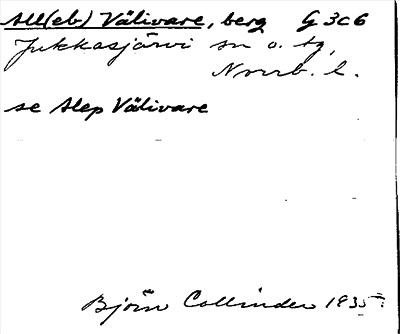 All(eb) Välivare, berg G3c6
Jukkasjärvi sn o. tg,
Norrb. l.
se Alep Välivare
Björn Collinder 1935.